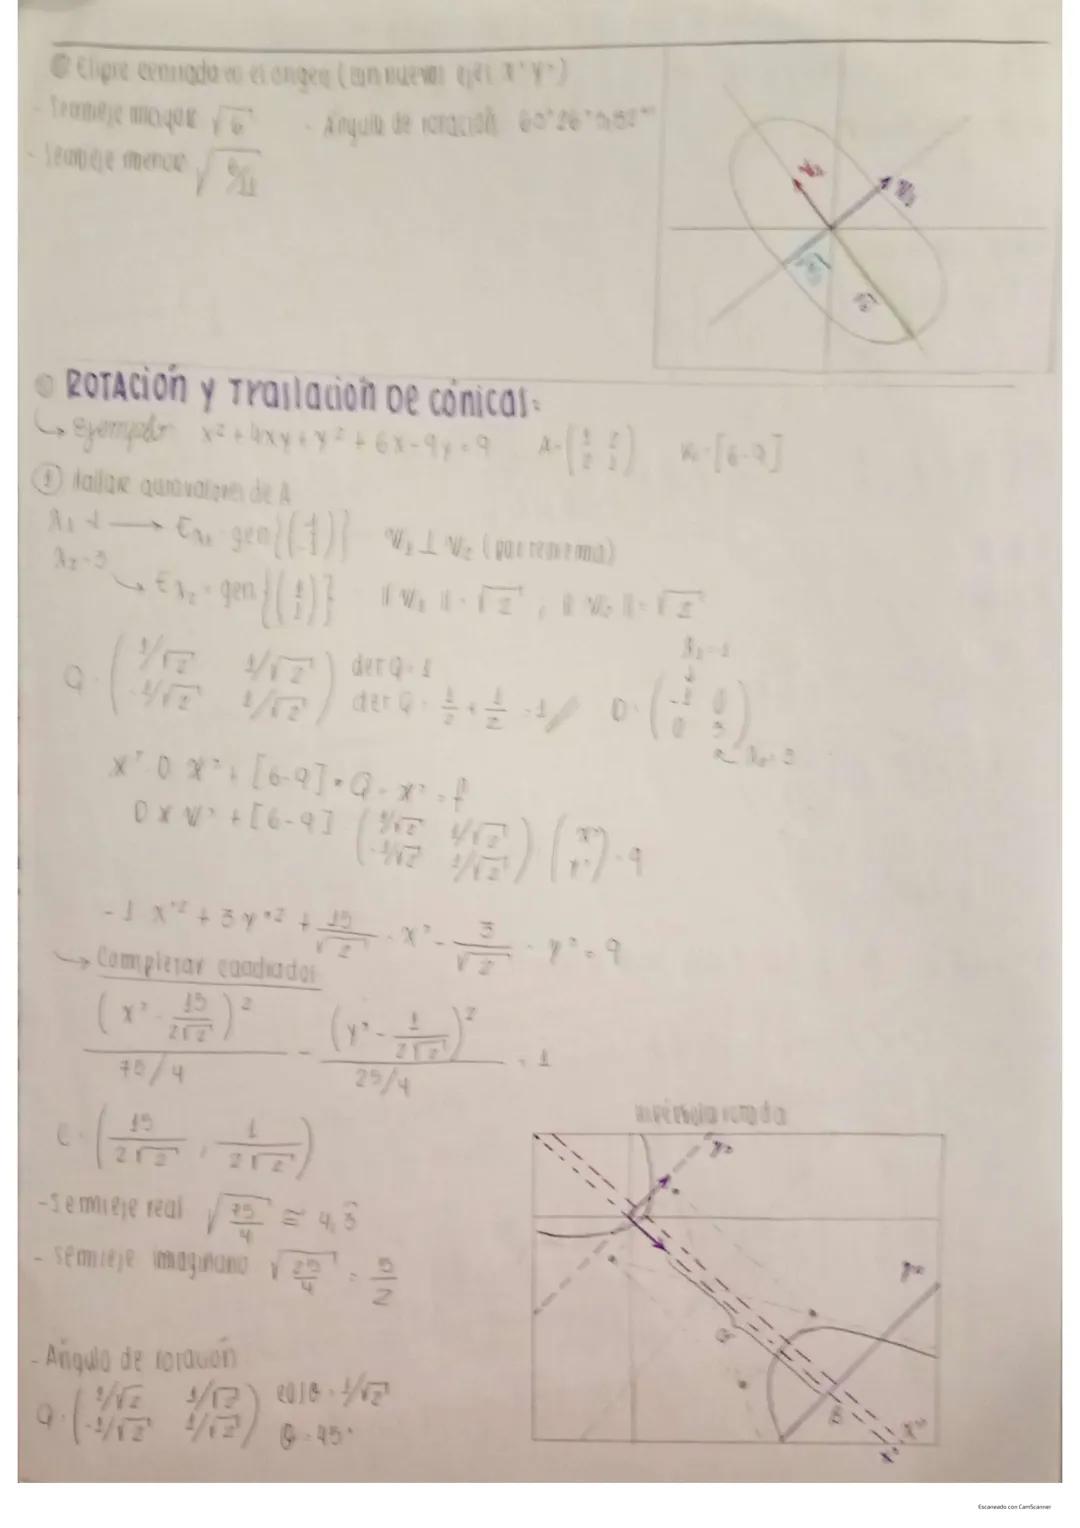 Elipse centrada en el origen (con nuevos ejes x' y')
- Semieje mayor √6 - Ángulo de rotación 60°26'5,82"
- Semieje menor √6/11
ROTACIÓN y Traslación DE cónicas:
↳ ejemplo: x² + 4xy + y² + 6x - 9y = 9 A = (1 2 / 2 1) K = [6 -9]
① Hallar autovalores de A
λ₁ = -1 → Eλ₁ = gen{(1 / -1)} v₁ ⊥ v₂ (por teorema)
λ₂ = 3 ↳ Eλ₂ = gen{(1 / 1)} ||v₁|| = √2 ; ||v₂|| = √2
Q = (1/√2 1/√2 / -1/√2 1/√2) det Q = 1
det Q = 1/2 + 1/2 = 1 // D = (-1 0 / 0 3) λ₁ = -1 λ₂ = 3
x'ᵀ D x' + [6 -9] · Q · x' = f
+ [6 -9] (1/√2 1/√2 / -1/√2 1/√2) (x' / y') = 9
-1 x'² + 3y'² + 15/√2 · x' - 3/√2 · y' = 9
↳ Completar cuadrados
(x' - 15/2√2)² / 75/4 - (y' - 1/2√2)² / 25/4 = 1
C = (15/2√2 , 1/2√2)
- Semieje real √75/4 ≅ 4,3
- semieje imaginario √25/4 = 5/2
- Ángulo de rotación
Q = (1/√2 1/√2 / -1/√2 1/√2) cos θ = 1/√2
θ = 45°
Hipérbola rotada
y'
y''
x''
x'
Escaneado con CamScanner